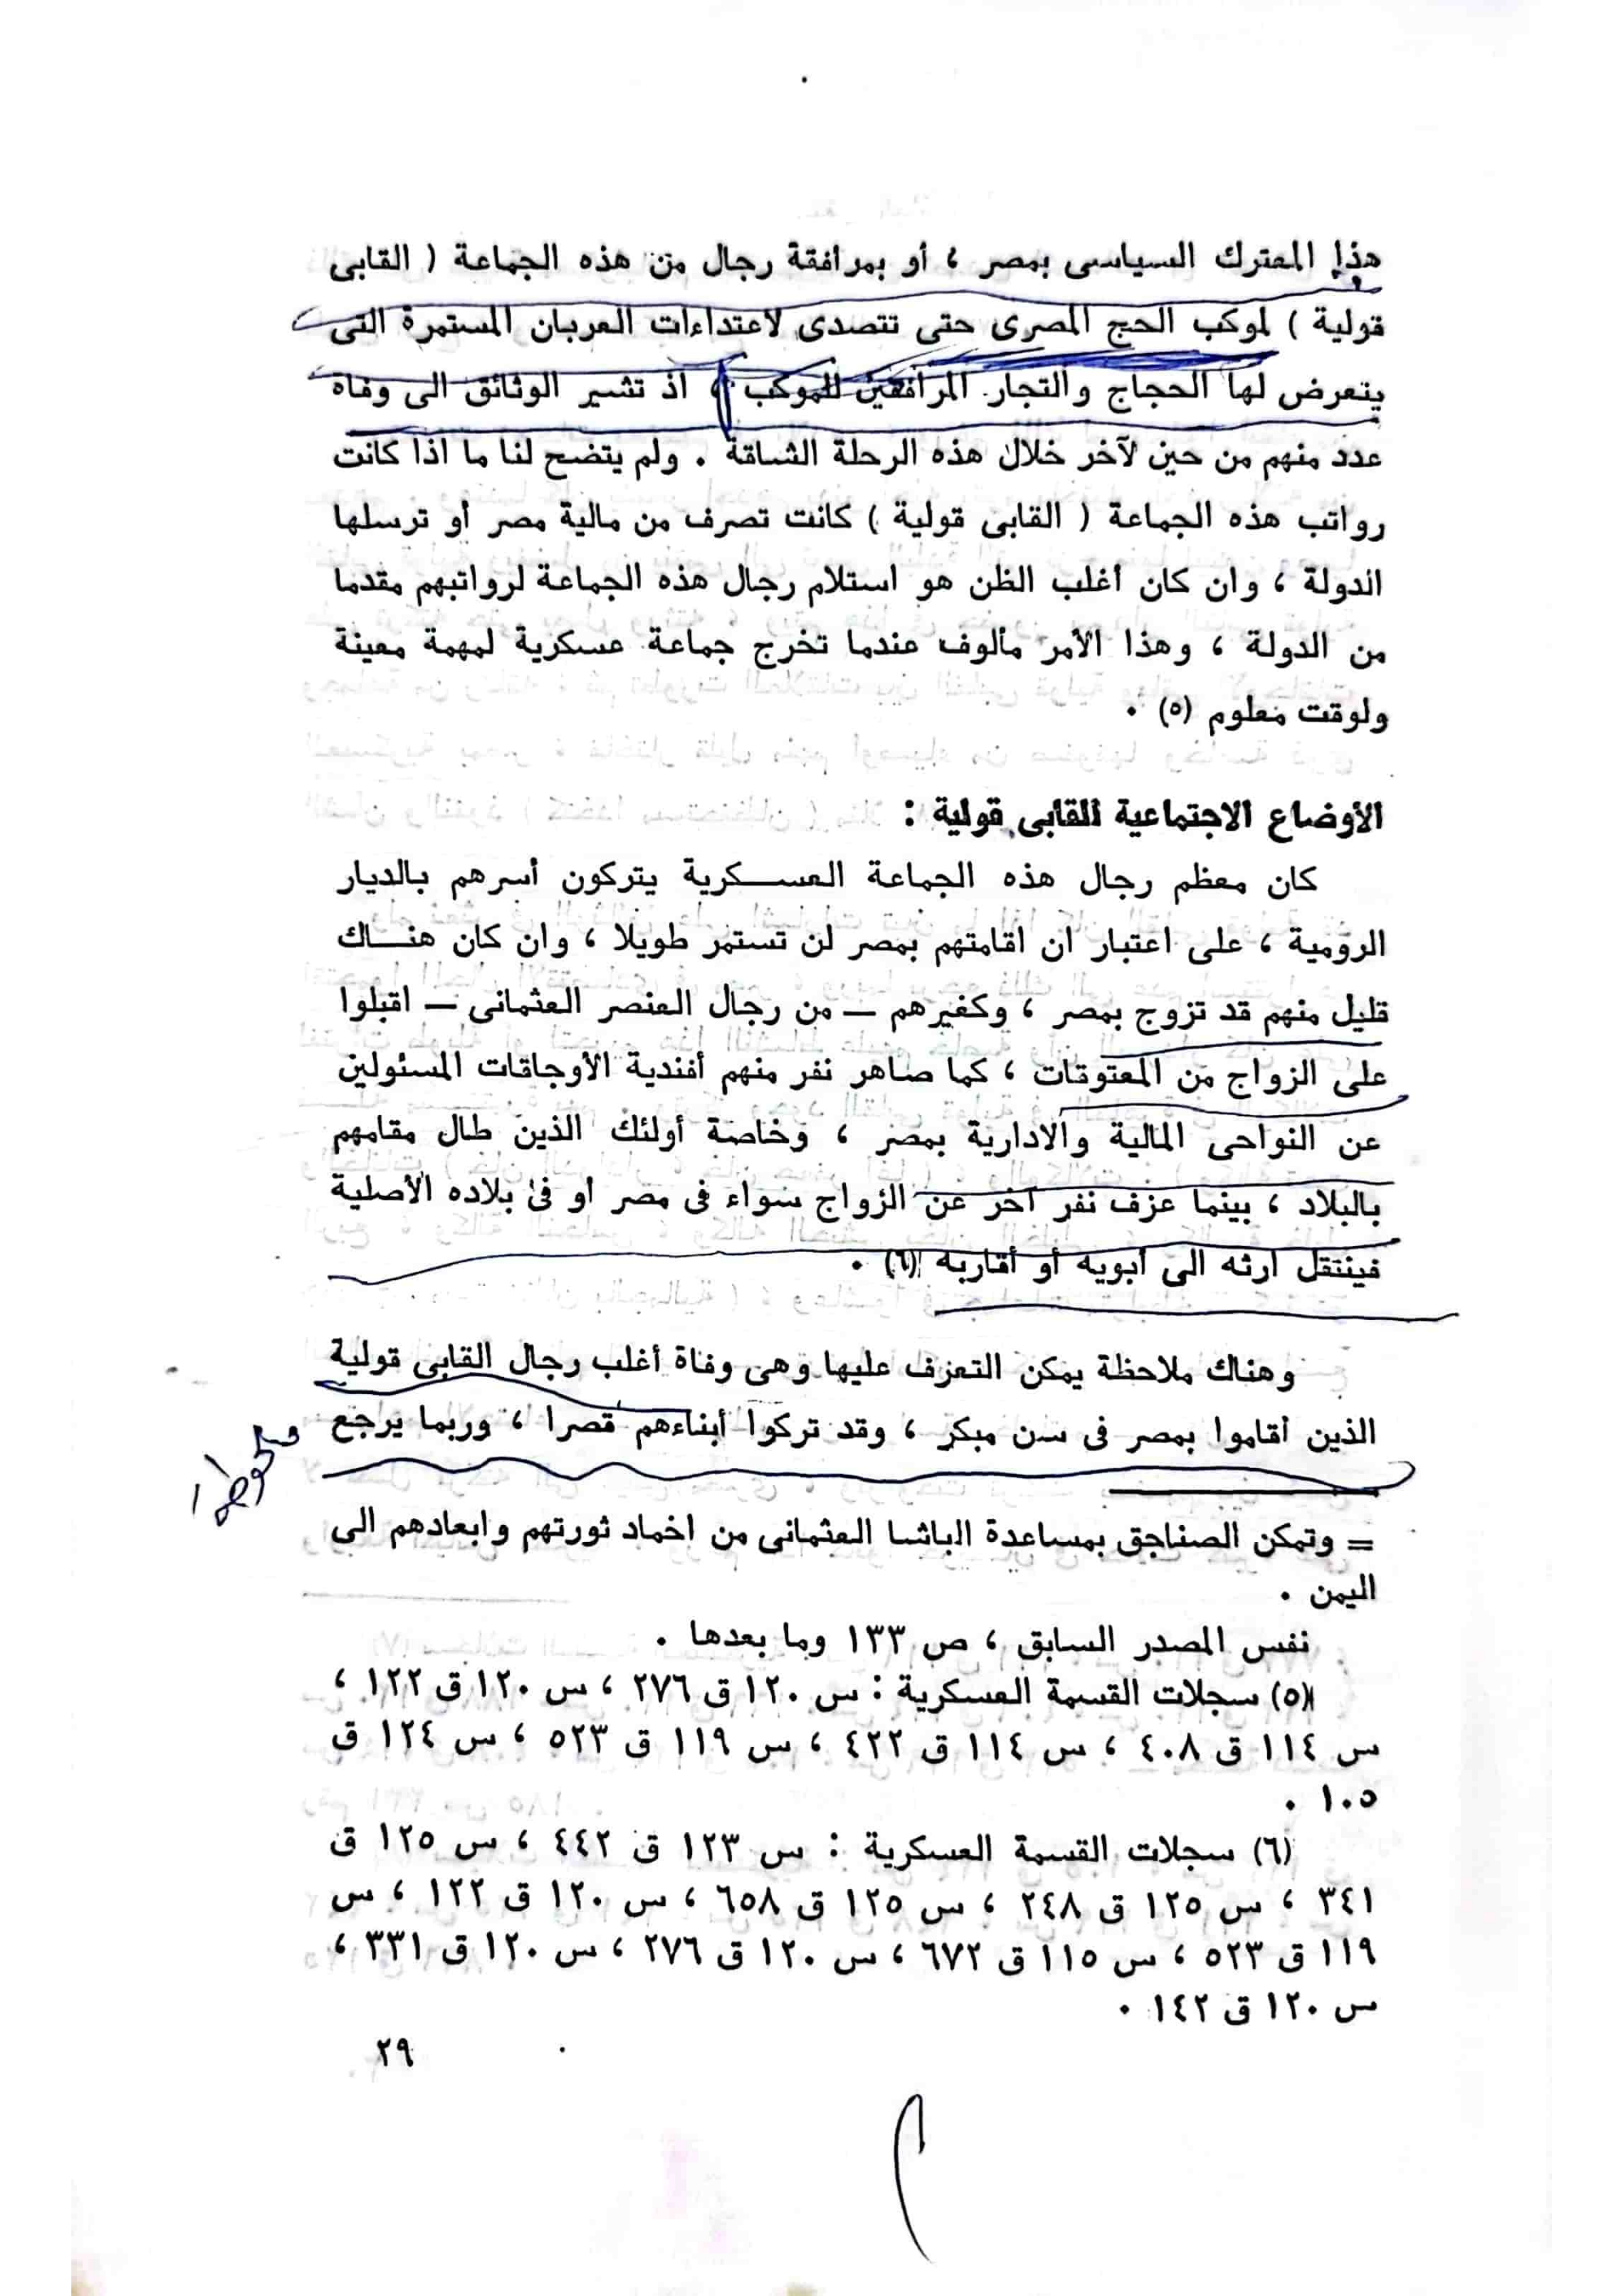 هذا المعترك السياسى بمصر ، أو بمرافقة رجال من هذه الجماعة ( القابى
قولية ) لموكب الحج المصرى حتى تتصدى لاعتداءات العربان المستمرة التى
يتعرض لها الحجاج والتجار المرافقين للموكب ، اذ تشير الوثائق الى وفاة
عدد منهم من حين لآخر خلال هذه الرحلة الشاقة . ولم يتضح لنا ما اذا كانت
رواتب هذه الجماعة ( القابى قولية ) كانت تصرف من مالية مصر أو ترسلها
الدولة ، وان كان أغلب الظن هو استلام رجال هذه الجماعة لرواتبهم مقدما
من الدولة ، وهذا الأمر مألوف عندما تخرج جماعة عسكرية لمهمة معينة
ولوقت معلوم (٥) .
الأوضاع الاجتماعية للقابى قولية :
كان معظم رجال هذه الجماعة العسكرية يتركون أسرهم بالديار
الرومية ، على اعتبار ان اقامتهم بمصر لن تستمر طويلا ، وان كان هناك
قليل منهم قد تزوج بمصر ، وكغيرهم — من رجال العنصر العثمانى — اقبلوا
على الزواج من المعتوقات ، كما صاهر نفر منهم أفندية الأوجاقات المسئولين
عن النواحى المالية والادارية بمصر ، وخاصة أولئك الذين طال مقامهم
بالبلاد ، بينما عزف نفر آخر عن الزواج سواء فى مصر أو فى بلاده الأصلية
فينتقل ارثه الى أبويه أو أقاربه (٦) .
وهناك ملاحظة يمكن التعرف عليها وهى وفاة أغلب رجال القابى قولية
الذين أقاموا بمصر فى سن مبكر ، وقد تركوا أبناءهم قصرا ، وربما يرجع
= وتمكن الصناجق بمساعدة الباشا العثمانى من اخماد ثورتهم وابعادهم الى
اليمن .
نفس المصدر السابق ، ص ١٣٣ وما بعدها .
(٥) سجلات القسمة العسكرية : س ١٢٠ ق ٢٧٦ ، س ١٢٠ ق ١٢٢ ،
س ١١٤ ق ٤٠٨ ، س ١١٤ ق ٤٢٢ ، س ١١٩ ق ٥٢٣ ، س ١٢٤ ق
١٠٥ .
(٦) سجلات القسمة العسكرية : س ١٢٣ ق ٤٤٢ ، س ١٢٥ ق
٣٤١ ، س ١٢٥ ق ٢٤٨ ، س ١٢٥ ق ٦٥٨ ، س ١٢٠ ق ١٢٢ ، س
١١٩ ق ٥٢٣ ، س ١١٥ ق ٦٧٢ ، س ١٢٠ ق ٢٧٦ ، س ١٢٠ ق ٣٣١ ،
س ١٢٠ ق ١٤٢ .
٢٩